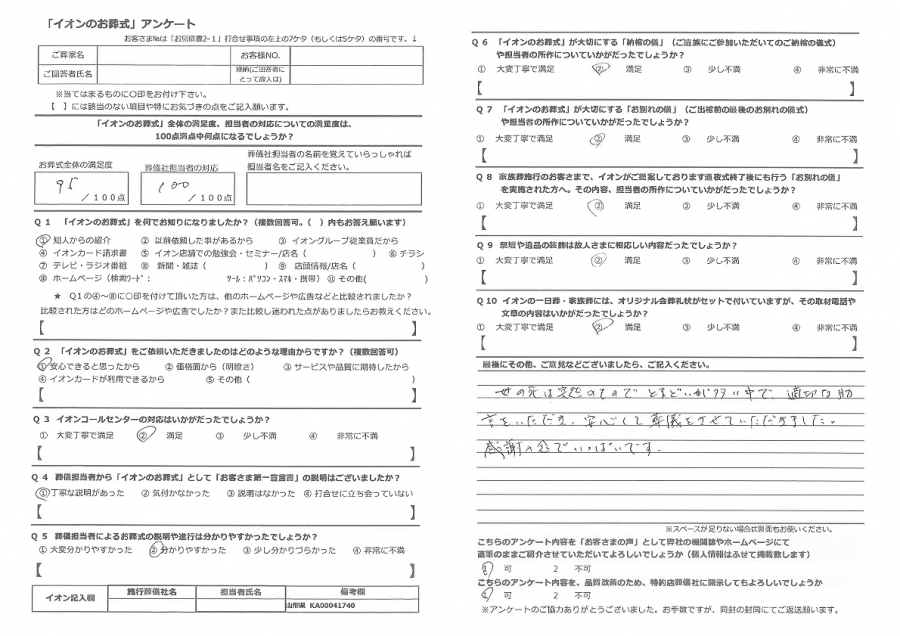 「イオンのお葬式」アンケート
お客さま№は「お見積書2-1」打合せ事項の左上の7ケタ（もしくは5ケタ）の番号です。↓
ご葬家名 お客様NO.
ご回答者氏名 続柄(ご回答者にとって故人は)
※当てはまるものに〇印をお付け下さい。
【　】には該当のない項目や特にお気づきの点をご記入願います。
「イオンのお葬式」全体の満足度、担当者の対応についての満足度は、
100点満点中何点になるでしょうか？
お葬式全体の満足度 葬儀社担当者の対応 葬儀社担当者の名前を覚えていらっしゃれば
担当者名をご記入ください。
95 ／100点 100 ／100点
Q 1 「イオンのお葬式」を何でお知りになりましたか？（複数回答可。（　）内もお答え願います）
① 知人からの紹介 ② 以前依頼した事があるから ③ イオングループ従業員だから
④ イオンカード請求書 ⑤ イオン店舗での勉強会・セミナー/店名（　） ⑥ チラシ
⑦ テレビ・ラジオ番組 ⑧ 新聞・雑誌（　） ⑨ 店頭情報/店名（　）
⑩ ホームページ（検索ﾜｰﾄﾞ： ﾂｰﾙ：ﾊﾟｿｺﾝ・ｽﾏﾎ・携帯）⑪ その他(　)
★ Q1の④～⑩に〇印を付けて頂いた方は、他のホームページや広告などと比較されましたか？
比較された方はどのホームページや広告でしたか？また比較し迷われた点がありましたらお教えください。
【　】
Q 2 「イオンのお葬式」をご依頼いただきましたのはどのような理由からですか？（複数回答可）
① 安心できると思ったから ② 価格面から（明瞭さ） ③ サービスや品質に期待したから
④ イオンカードが利用できるから ⑤ その他（　）
【　】
Q 3 イオンコールセンターの対応はいかがだったでしょうか？
① 大変丁寧で満足 ② 満足 ③ 少し不満 ④ 非常に不満
【　】
Q 4 葬儀担当者から「イオンのお葬式」として「お客さま第一宣言書」の説明はございましたか？
① 丁寧な説明があった ② 気付かなかった ③ 説明はなかった ④ 打合せに立ち会っていない
【　】
Q 5 葬儀担当者によるお葬式の説明や進行は分かりやすかったでしょうか？
① 大変分かりやすかった ② 分かりやすかった ③ 少し分かりづらかった ④ 非常に不満
【　】
イオン記入欄 施行葬儀社名 担当者氏名 備考欄
山形県 KA00041740
Q 6 「イオンのお葬式」が大切にする「納棺の儀」（ご遺族にご参加いただいてのご納棺の儀式）
や担当者の所作についていかがだったでしょうか？
① 大変丁寧で満足 ② 満足 ③ 少し不満 ④ 非常に不満
【　】
Q 7 「イオンのお葬式」が大切にする「お別れの儀」（ご出棺前の最後のお別れの儀式）
や担当者の所作についていかがだったでしょうか？
① 大変丁寧で満足 ② 満足 ③ 少し不満 ④ 非常に不満
【　】
Q 8 家族葬施行のお客さまで、イオンがご提案しております通夜式終了後にも行う「お別れの儀」
を実施された方へ。その内容、担当者の所作についていかがだったでしょうか？
① 大変丁寧で満足 ② 満足 ③ 少し不満 ④ 非常に不満
【　】
Q 9 祭壇や遺品の装飾は故人さまに相応しい内容だったでしょうか？
① 大変丁寧で満足 ② 満足 ③ 少し不満 ④ 非常に不満
【　】
Q 10 イオンの一日葬・家族葬には、オリジナル会葬礼状がセットで付いていますが、その取材電話や
文章の内容はいかがだったでしょうか？
① 大変丁寧で満足 ② 満足 ③ 少し不満 ④ 非常に不満
【　】
最後にその他、ご意見などございましたら、ご記入ください。
母の死は突然のものでとまどいが多い中で、適切な助
言をいただき、安心して葬儀をさせていただきました。
感謝の念でいっぱいです。
※スペースが足りない場合は裏面もお使いください。
こちらのアンケート内容を「お客さまの声」として弊社の機関誌やホームページにて
直筆のままご紹介させていただいてよろしいでしょうか（個人情報はふせて掲載致します）
1 可 2 不可
こちらのアンケート内容を、品質改善のため、特約店葬儀社に開示してもよろしいでしょうか
1 可 2 不可
※アンケートのご協力ありがとうございました。お手数ですが、同封の封筒にてご返送願います。